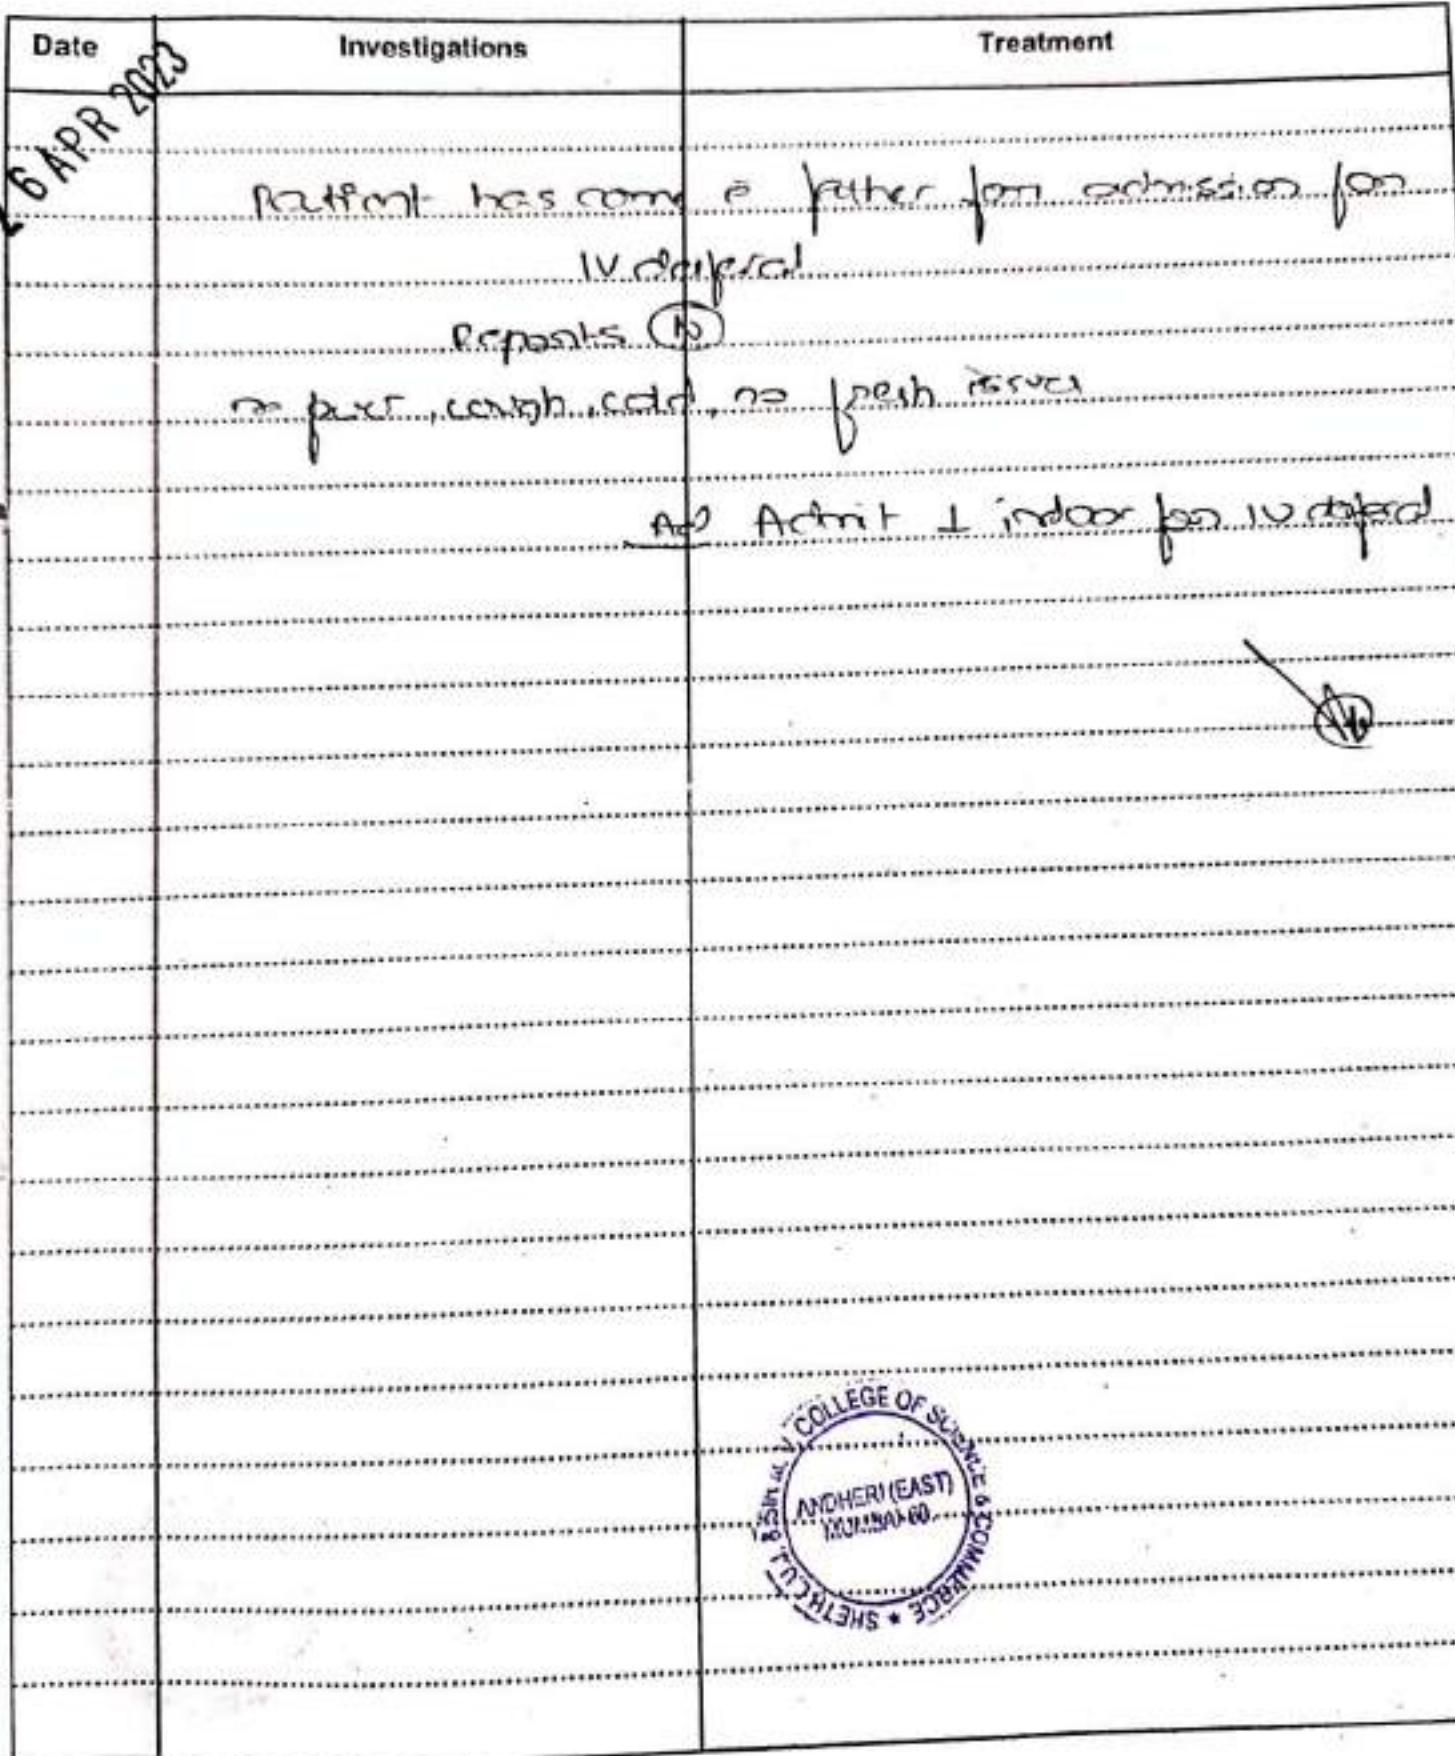 Date Investigations Treatment
26 APR 2023
Patient has come c̄ father for admission for
IV desferal
Reports N
no fever, cough, cold, no fresh issues
Adv Admit 1 indoor for IV desferal
COLLEGE OF SCIENCE & COMMERCE * SHETH L.U.J. &
ANDHERI (EAST)
MUMBAI-60.